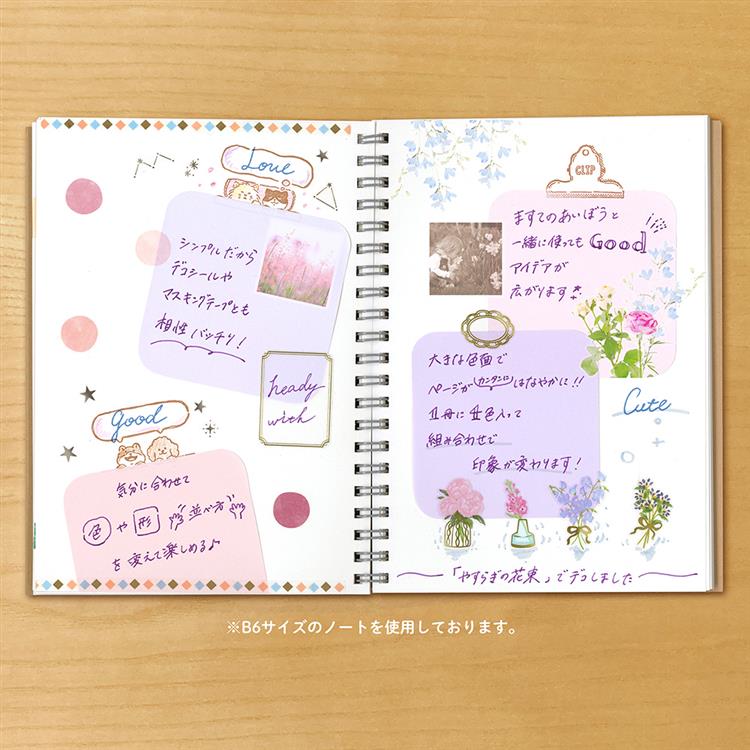 Love
シンプルだから
デコシールや
マスキングテープとも
相性バッチリ！
heady
with
Good
気分に合わせて
色や形 並べ方
を変えて楽しめる♪
CLIP
ますてのあいぼうと
一緒に使ってもGood
アイデアが
広がります！
大きな色面で
ページがカンタンにはなやかに！！
1冊に4色入って
組み合わせで
印象が変わります！
Cute
「やすらぎの花束」でデコしました
※B6サイズのノートを使用しております。